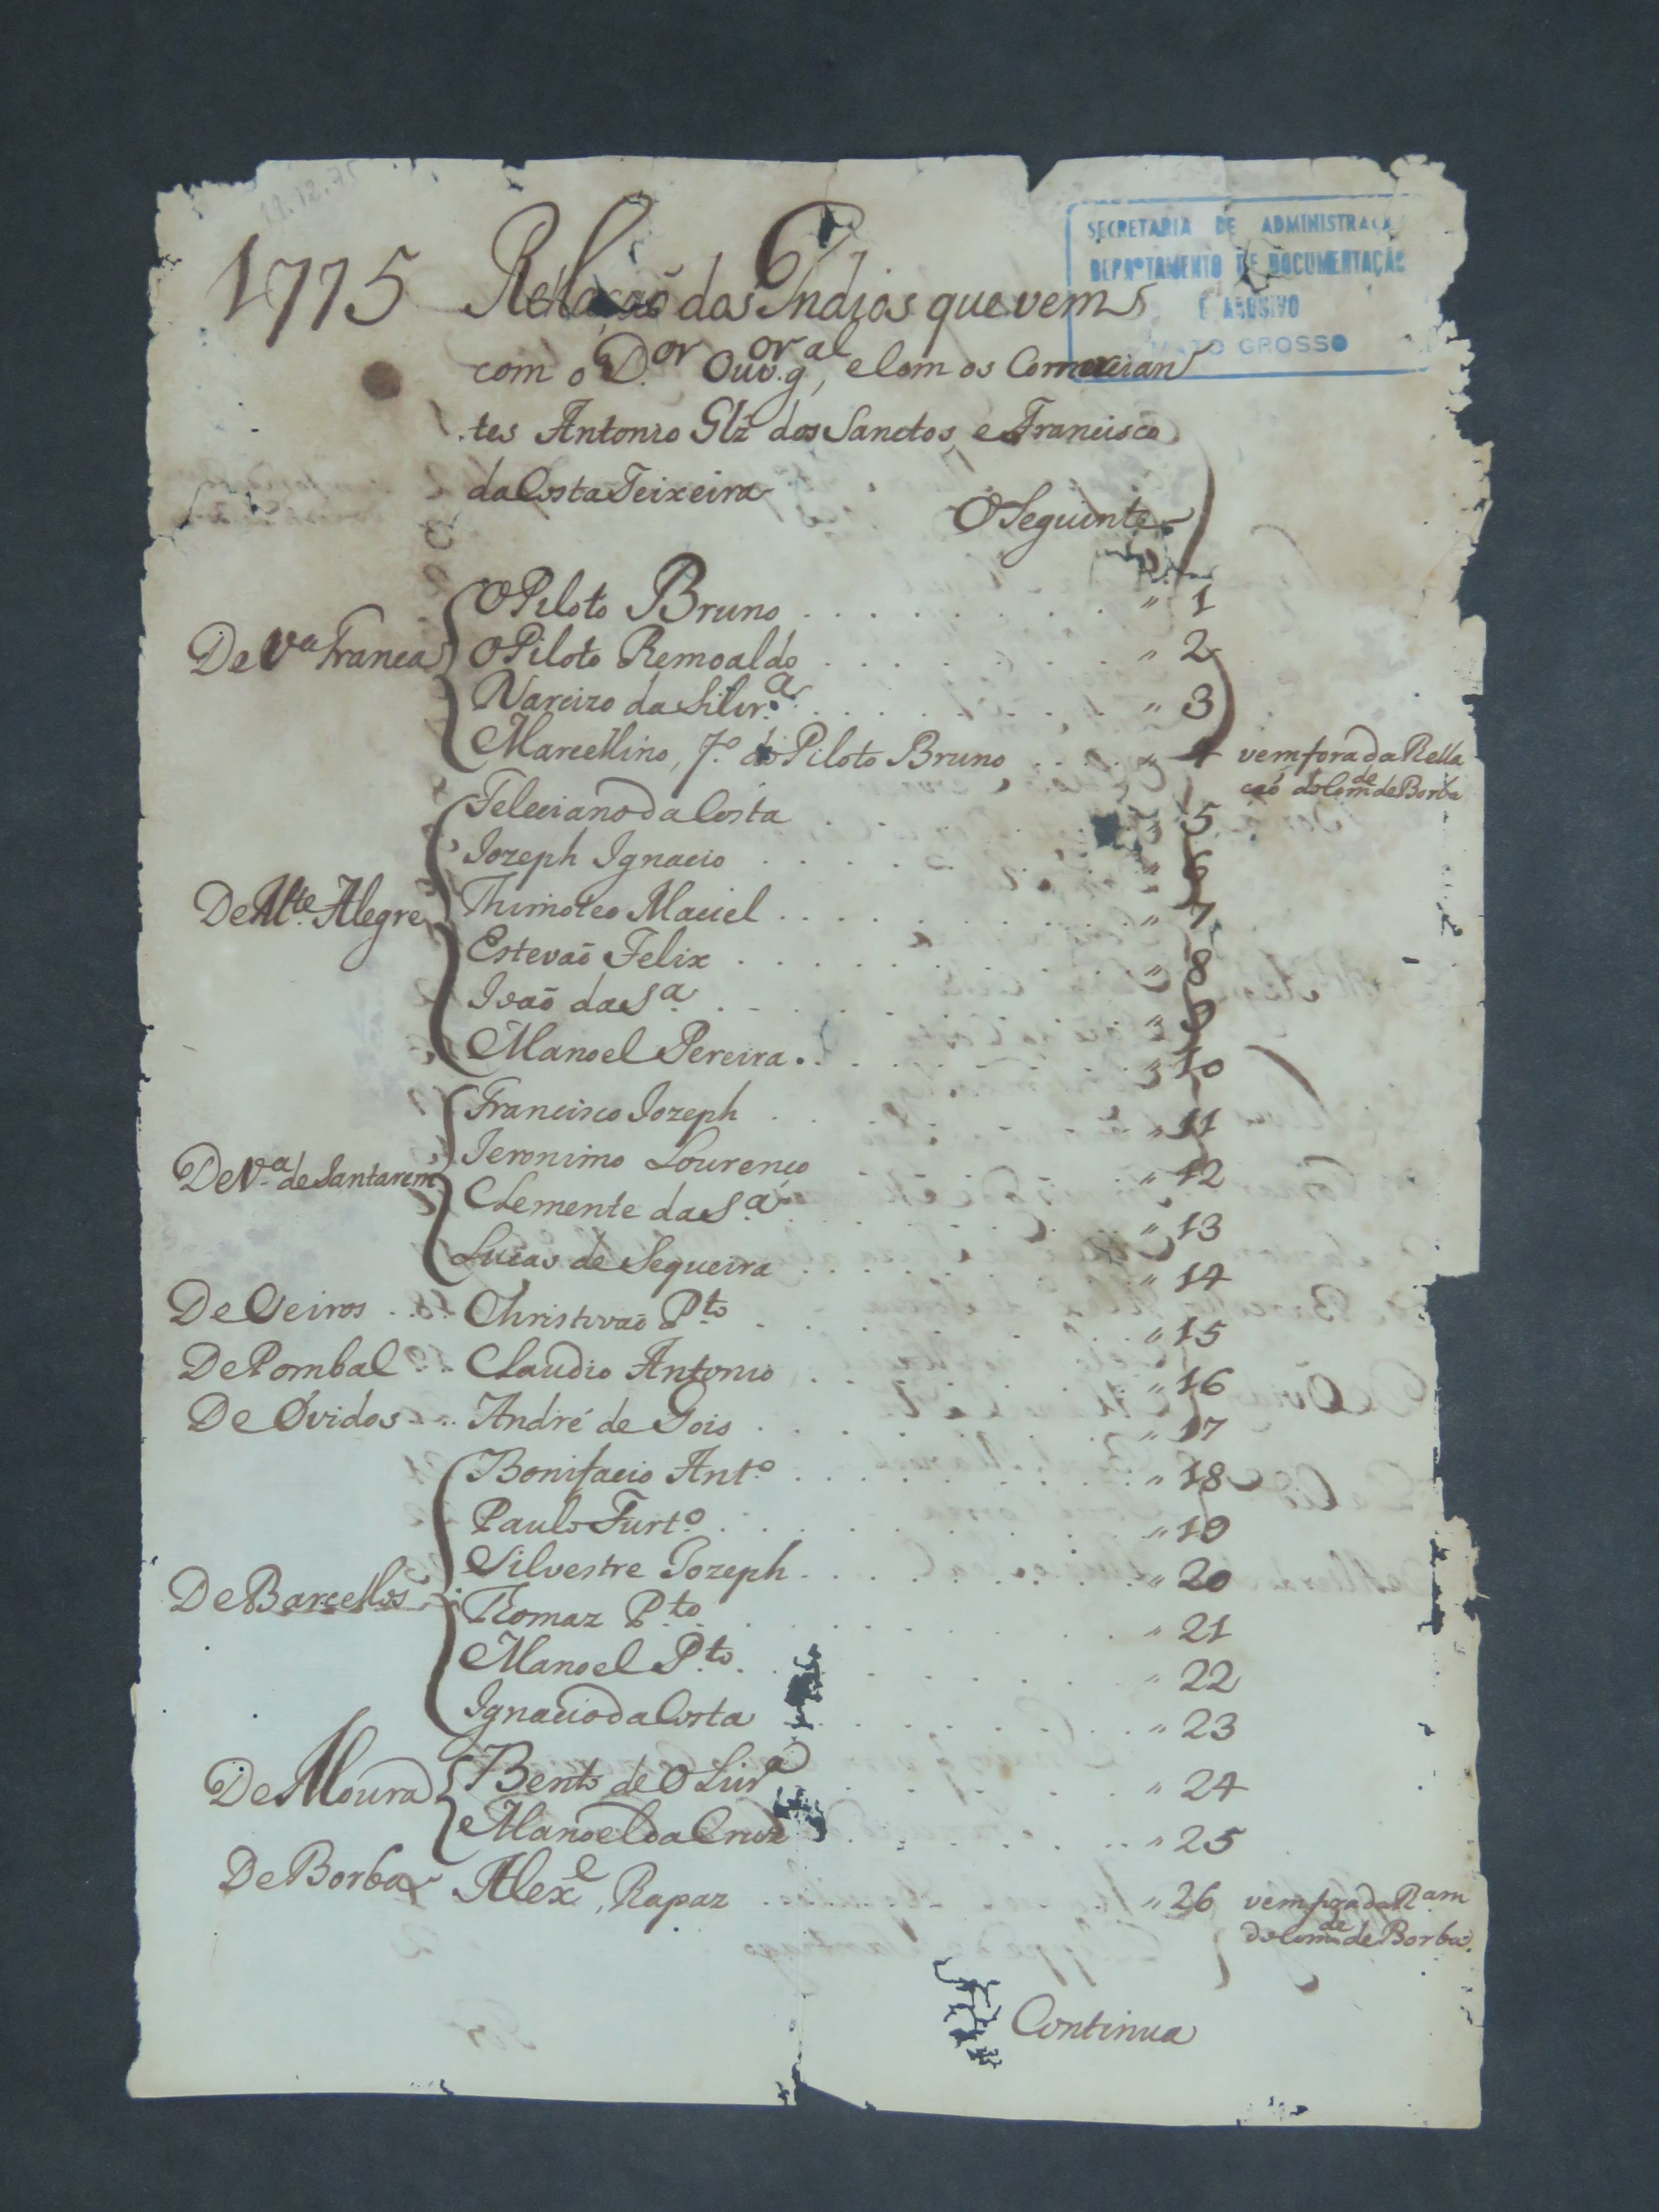 19.12.75
SECRETARIA DE ADMINISTRAÇÃ
DEPARTAMENTO DE DOCUMENTAÇÃO
E ARQUIVO
MATO GROSSO
1775 Relação dos Indios que vem
com o D.or Ouv.or g.al, e com os Comercian
tes Antonio Glz dos Sanctos, e Francisco
da Costa Teixeira
O Seguinte
De V.a Franca
O Piloto Bruno . . . . . . . . " 1
O Piloto Remoaldo . . . . . . . " 2
Narcizo da Silvr.a . . . . . . . " 3
Marcellino, f.o do Piloto Bruno . . . " 4 vem fora da Rella
ção do Com.de de Borba
De M.te Alegre
Feleciano da Costa . . . . " 5
Jozeph Ignacio . . . . " 6
Thimoteo Maciel . . . . . . . . " 7
Estevaõ Felix . . . . . . . . " 8
Joaõ da S.a . . . . . . " 9
Manoel Pereira . . . . . . . " 10
De V.a de Santarem
Francisco Jozeph . . . . . " 11
Jeronimo Lourenço . . . . " 12
Clemente da S.a . . . . . . . " 13
Lucas de Sequeira . . . . . . . " 14
De Oeiros . . . Christovaõ P.to . . . . . . " 15
De Pombal . . . Claudio Antonio . . . . . . " 16
De Óvidos . . . André de Gois . . . . . . " 17
De Barcellos
Bonifacio Ant.o . . . . . . . " 18
Paulo Furt.o . . . . . . . . " 19
Silvestre Jozeph . . . . . . . " 20
Thomaz P.to . . . . . . . . " 21
Manoel P.to . . . . . . . " 22
Ignacio da Costa . . . . . . . " 23
De Moura
Bento de Olivr.a . . . . . . " 24
Manoel da Cruz . . . . . . . " 25
De Borba Alex.e, Rapaz . . . . . . " 26 vem fora da R.am
do Com.de de Borba.
Continua